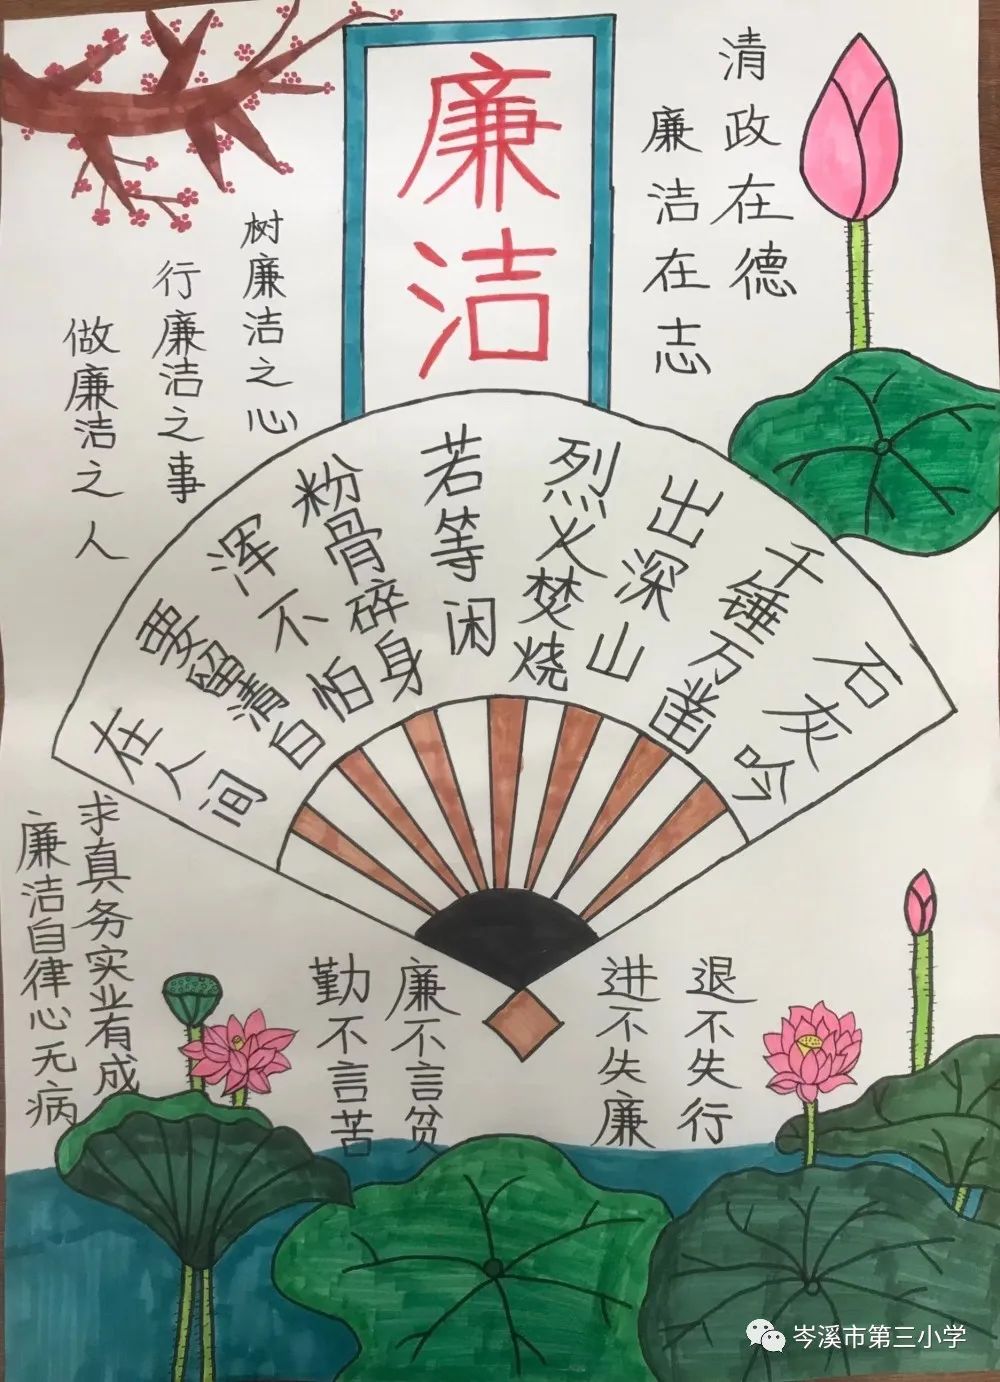 廉洁
清政在德
廉洁在志
树廉洁之心
行廉洁之事
做廉洁之人
石灰吟
千锤万凿
出深山
烈火焚烧
若等闲
粉骨碎身
浑不怕
要留清白
在人间
求真务实业有成
廉洁自律心无病
退不失行
进不失廉
廉不言贫
勤不言苦
岑溪市第三小学